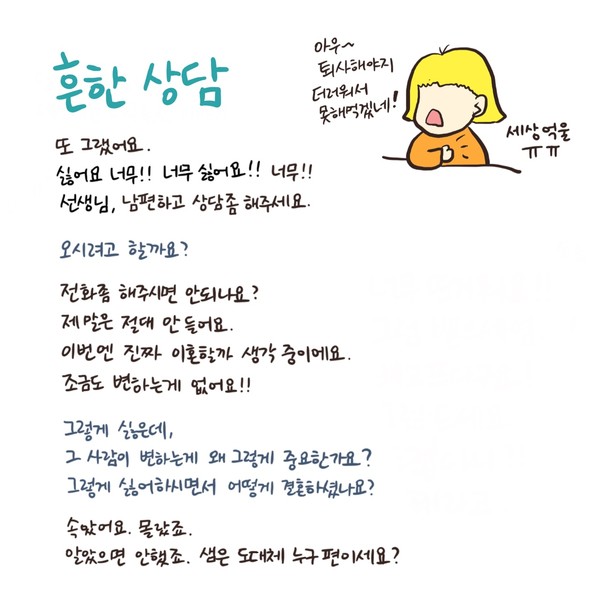 흔한 상담
아우~
퇴사해야지
더러워서
못해먹겠네!
세상 억울
ㅠㅠ
또 그랬어요.
싫어요 너무!! 너무 싫어요!! 너무!!
선생님, 남편하고 상담좀 해주세요.
오시려고 할까요?
전화좀 해주시면 안되나요?
제말은 절대 안들어요.
이번엔 진짜 이혼할까 생각 중이에요.
조금도 변하는게 없어요!!
그렇게 싫은데,
그 사람이 변하는게 왜 그렇게 중요한가요?
그렇게 싫어하시면서 어떻게 결혼하셨나요?
속았어요. 몰랐죠.
알았으면 안했죠. 샘은 도대체 누구 편이세요?